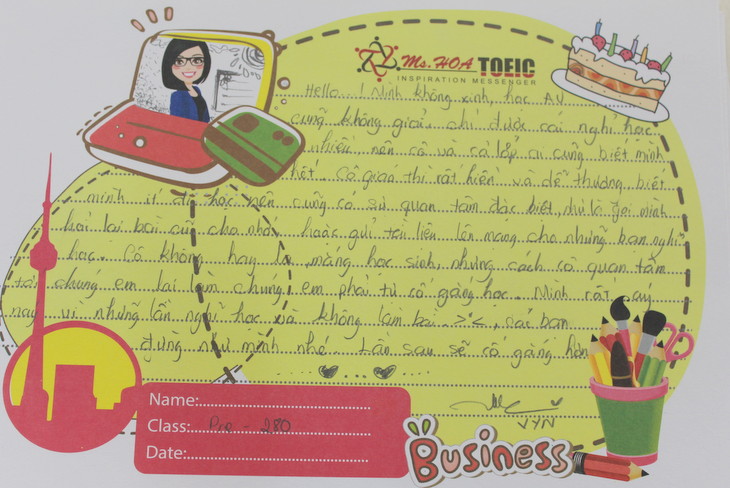 Ms.HOA TOEIC
INSPIRATION MESSENGER
Hello...! Mình không xinh, học AV
cũng không giỏi, chỉ được cái nghỉ học
nhiều nên cô và cả lớp ai cũng biết mình
hết. Cô quan thì rất hiền và dễ thương, biết
mình ít đi học nên cũng có sự quan tâm đặc biệt, như là gọi mình
lại bài cũ cho nhớ, hoặc gửi tài liệu lên mạng cho những bạn nghỉ
học. Cô không hay la, mắng học sinh, nhưng cách cô quan tâm
chúng em lại làm chúng em phải tự cố gắng học. Mình rất
vì những lần nghỉ học và không làm bài >'<, các bạn
đừng như mình nhé. Lần sau sẽ cố gắng hơn
Name:
Class: Pre - 280
Date:
VYN
Business